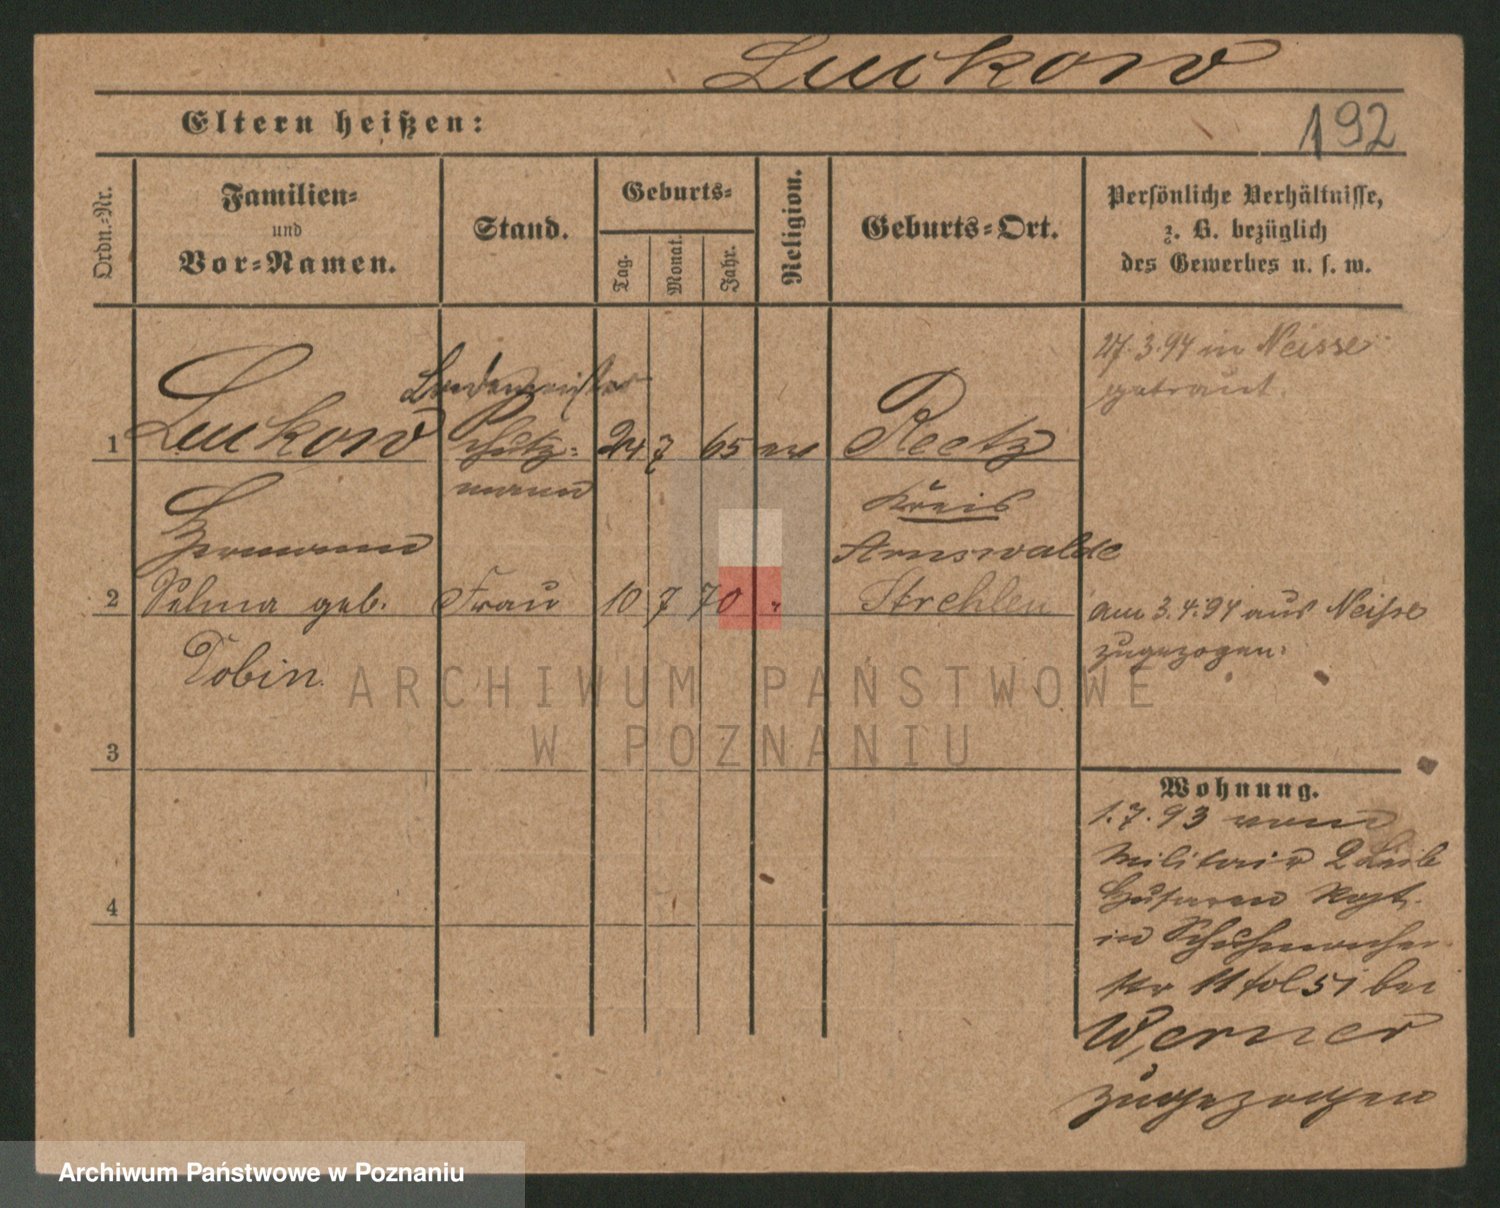 Luckow
Eltern heißen:
192
Ordn.-Nr.
Familien-
und
Vor-Namen.
Stand.
Geburts-
Tag.
Monat.
Jahr.
Religion.
Geburts-Ort.
Persönliche Verhältnisse,
z. B. bezüglich
des Gewerbes u. s. w.
27.3.94 in Neisse
getraut.
1 Luckow Schutz- 24 7 65 ev Reetz
mann Kreis
Hermann Arnswalde
2 Selma geb. Frau 10 7 70 " Strehlen
Tobin
am 3.4.94 aus Neisse
zugezogen.
3
4
Wohnung.
1.7.93 vom
Militair 2 Leib
Husaren Rgt.
in Schuhmacher
Str 11 fol 51 bei
Werner
zugezogen
ARCHIWUM PAŃSTWOWE
W POZNANIU
Archiwum Państwowe w Poznaniu